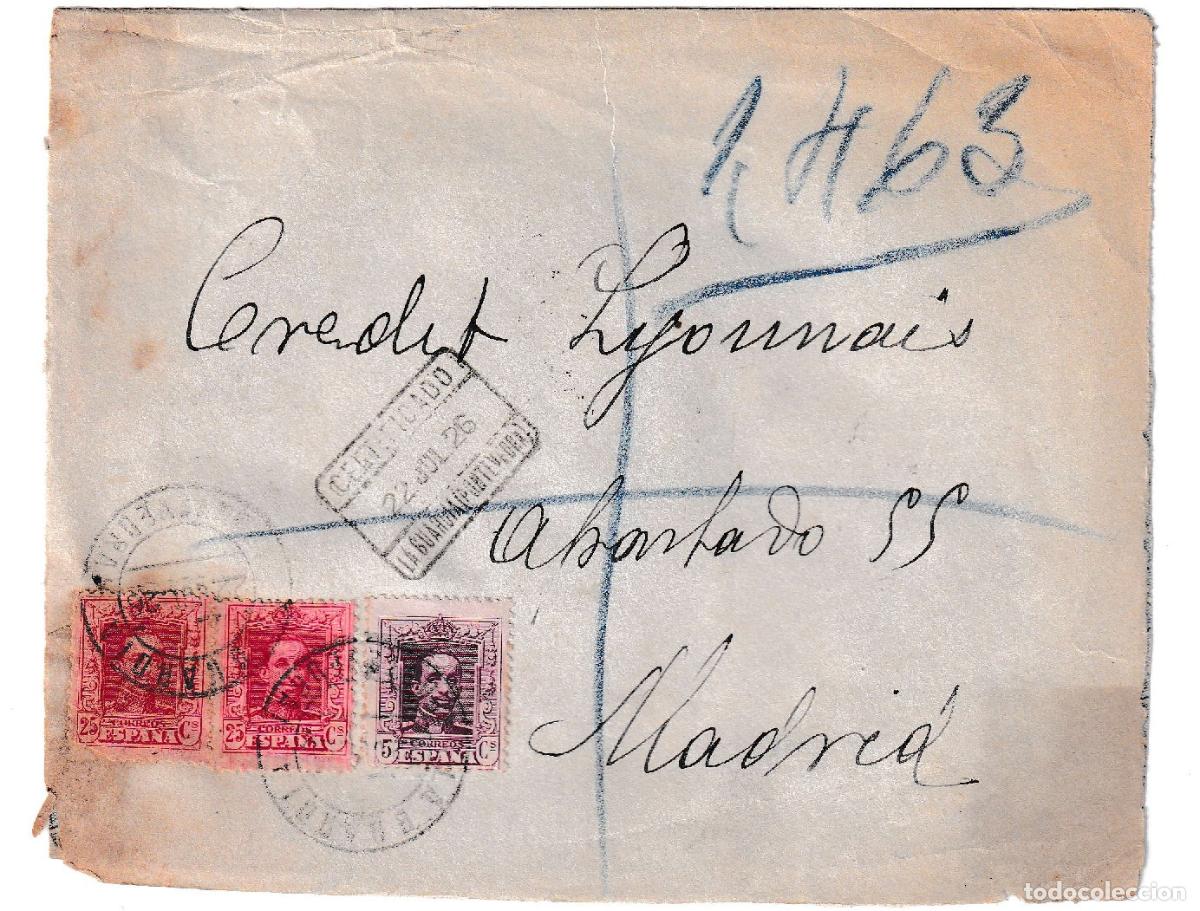 1,463
Credit Lyonnais
CERTIFICADO
22 JUL 26
LA GUARDIA (PONTEVEDRA)
Apartado 55
Madrid
25 CORREOS Cs
ESPAÑA
25 CORREOS Cs
ESPAÑA
5 CORREOS Cs
ESPAÑA
todocoleccion